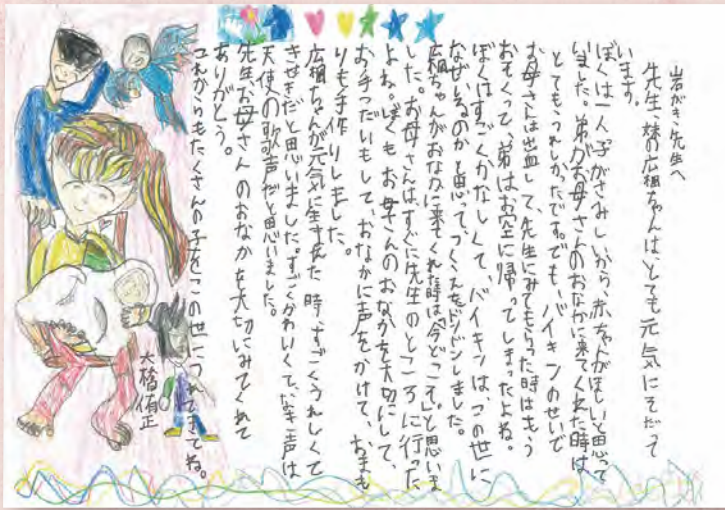 岩がき先生へ
先生、妹の広楓ちゃんは、とても元気にそだって
います。
ぼくは一人子がさみしいから、赤ちゃんがほしいと思って
いました。弟がお母さんのおなかに来てくれた時は、
とてもうれしかったです。でも、バイキンのせいで
お母さんは出血して、先生にみてもらった時はもう
おそくって、弟はお空に帰ってしまったよね。
ぼくはすごくかなしくて、バイキンは、この世に
なぜいるのかと思って、つくえをドンドンしました。
広楓ちゃんがおなかに来てくれた時は「今どこそ。」と思いま
した。お母さんは、すぐに先生のところに行った
よね。ぼくもお母さんのおなかを大切にして、
お手つだいもして、おなかに声をかけて、おまも
りも手作りしました。
広楓ちゃんが元気に生まれた時、すごくうれしくて
きせきだと思いました。すごくかわいくて、なき声は
天使の歌声だと思いました。
先生、お母さんのおなかを大切にみてくれて
ありがとう。
これからもたくさんの子をこの世につれてきてね。
大橋侑正